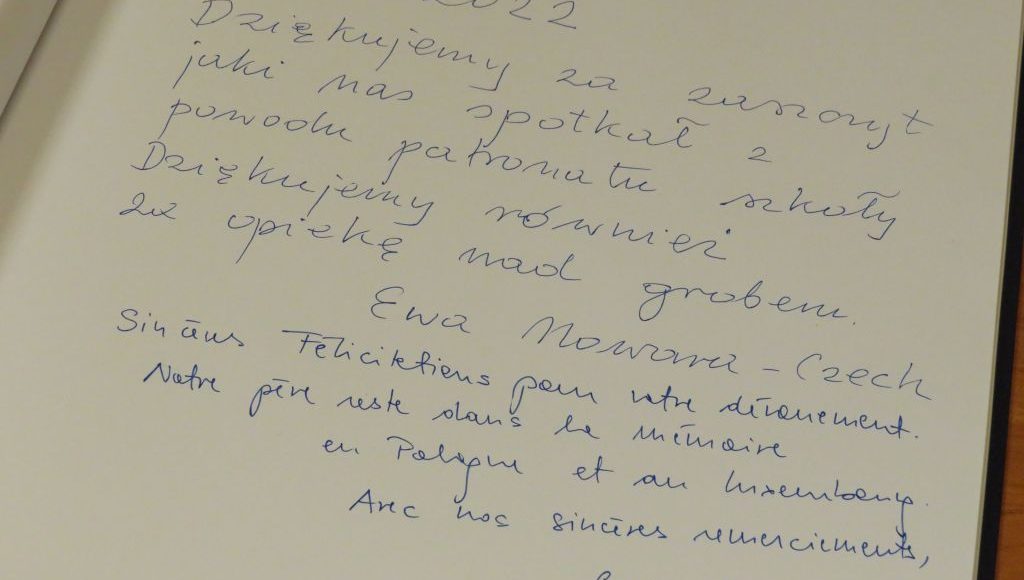 2022
Dziękujemy za zaszczyt
jaki nas spotkał z
powodu patronatu szkoły
Dziękujemy również
za opiekę nad grobem.
Ewa Nowara-Czech
Sincères Féliciktiens pour votre dévouement.
Notre père reste dans la mémoire
en Pologne et au Luxembourg.
Avec nos sincères remerciements,